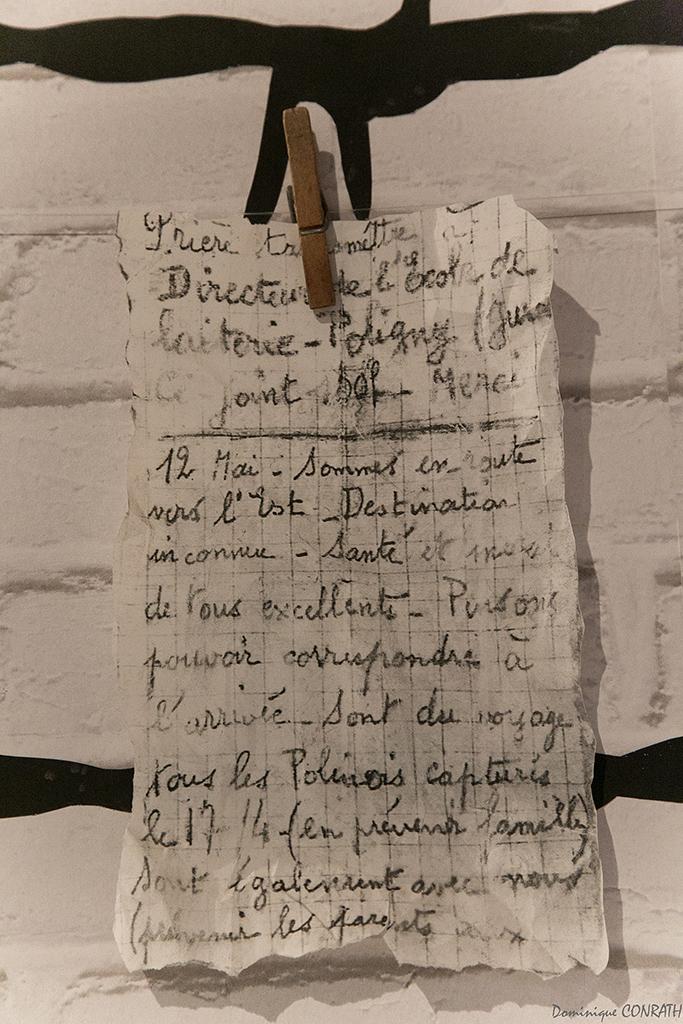 Prière transmettre à
Directeur de l'Ecole de
laiterie - Poligny (Jura
Ci joint 150f - Merci
12 Mai - Sommes en route
vers l'Est - Destination
inconnue - Santé et moral
de tous excellents - Pensons
pouvoir correspondre à
l'arrivée - Sont du voyage
tous les Polinois capturés
le 17/4 (en prévenir famille)
Sont également avec nous
(prévenir les parents
Dominique CONRATH